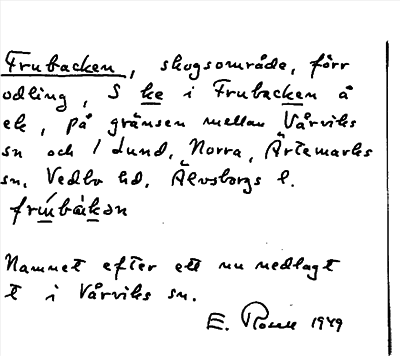 Frubacken, skogsområde, förr
odling, S ke i Frubacken å
ek, på gränsen mellan Vårviks
sn och / Lund, Norra, Ärtemarks
sn, Vedbo hd, Älvsborgs l.
Namnet efter ett nu nedlagt
t i Vårviks sn.
E. 1949